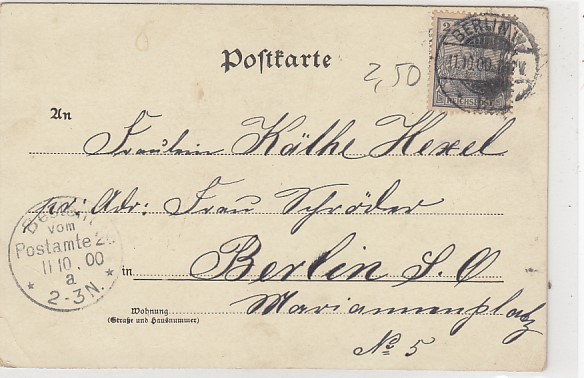 Postkarte
2
BERLIN W.
11.10.00
2,50
An
Fräulein Käthe Hexel
pr. Adr: Frau Schröder
Bestellt
vom
Postamte
11.10.00
a
* 2-3N. *
in Berlin S. O
Wohnung
(Straße und Hausnummer)
Mariannenplatz
No 5